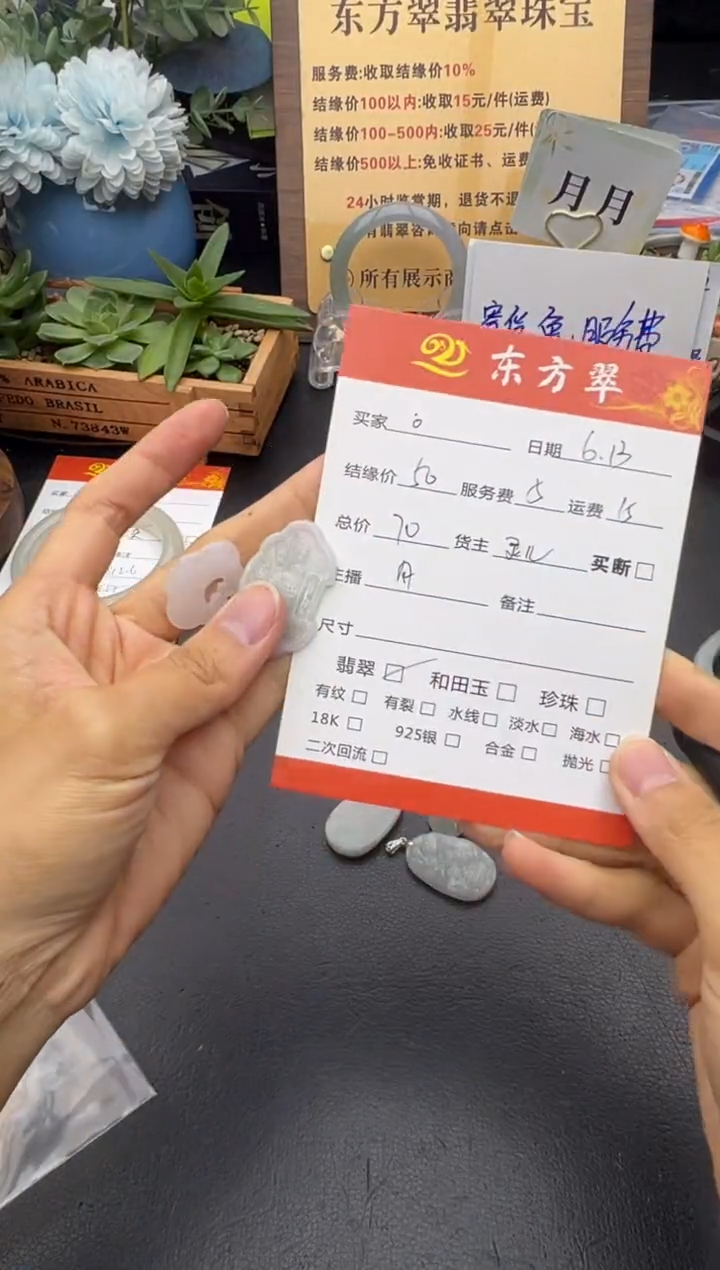 东方翠翡翠珠宝
服务费:收取结缘价10%
结缘价100以内:收取15元/件(运费)
结缘价100-500内:收取25元/件(
结缘价500以上:免收证书、运费
24小时鉴赏期，退货不退
有翡翠咨
向请点
所有展示商
月月
服务费
% ARABICA
FEDO BRASIL
N.73843W
东方翠
买家 日期 6.13
结缘价 50 服务费 5 运费 15
总价 70 货主 买断□
主播 月 备注
尺寸
翡翠☑ 和田玉□ 珍珠□
有纹□ 有裂□ 水线□ 淡水□ 海水□
18K□ 925银□ 合金□ 抛光□
二次回流□